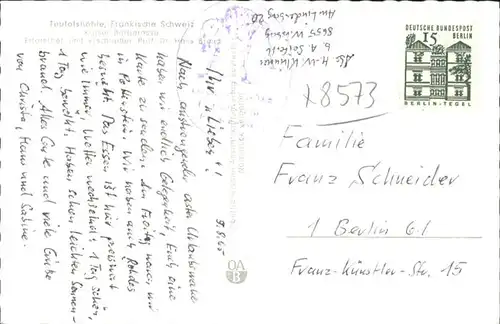 Teufelshöhle, Fränkische Schweiz
Erforscher und erschließer Prof. Dr. Hans Brand
Abs. H.-W. Schreiner
b. A. Seifert
8655 Wirsberg
Am Lindenberg 20
9.8.65
Ihr Lieben!
Nach anstrengender erster Urlaubswoche
haben wir endlich Gelegenheit, Euch eine
Karte zu senden. Am Freitag waren wir
in Pottenstein. Wir haben auch Rehdes
besucht. Das Essen ist hier preiswert
wie immer, Wetter wechselnd. 1 Tag schön,
1 Tag bewölkt. Haben schon leichten Sonnen-
brand. Alles Gute und viele Grüße
von Christa, Hans und Sabine.
DEUTSCHE BUNDESPOST
15 BERLIN
BERLIN-TEGEL
x8573
Familie
Franz Schneider
1 Berlin 61
Franz-Künstler-Str. 15